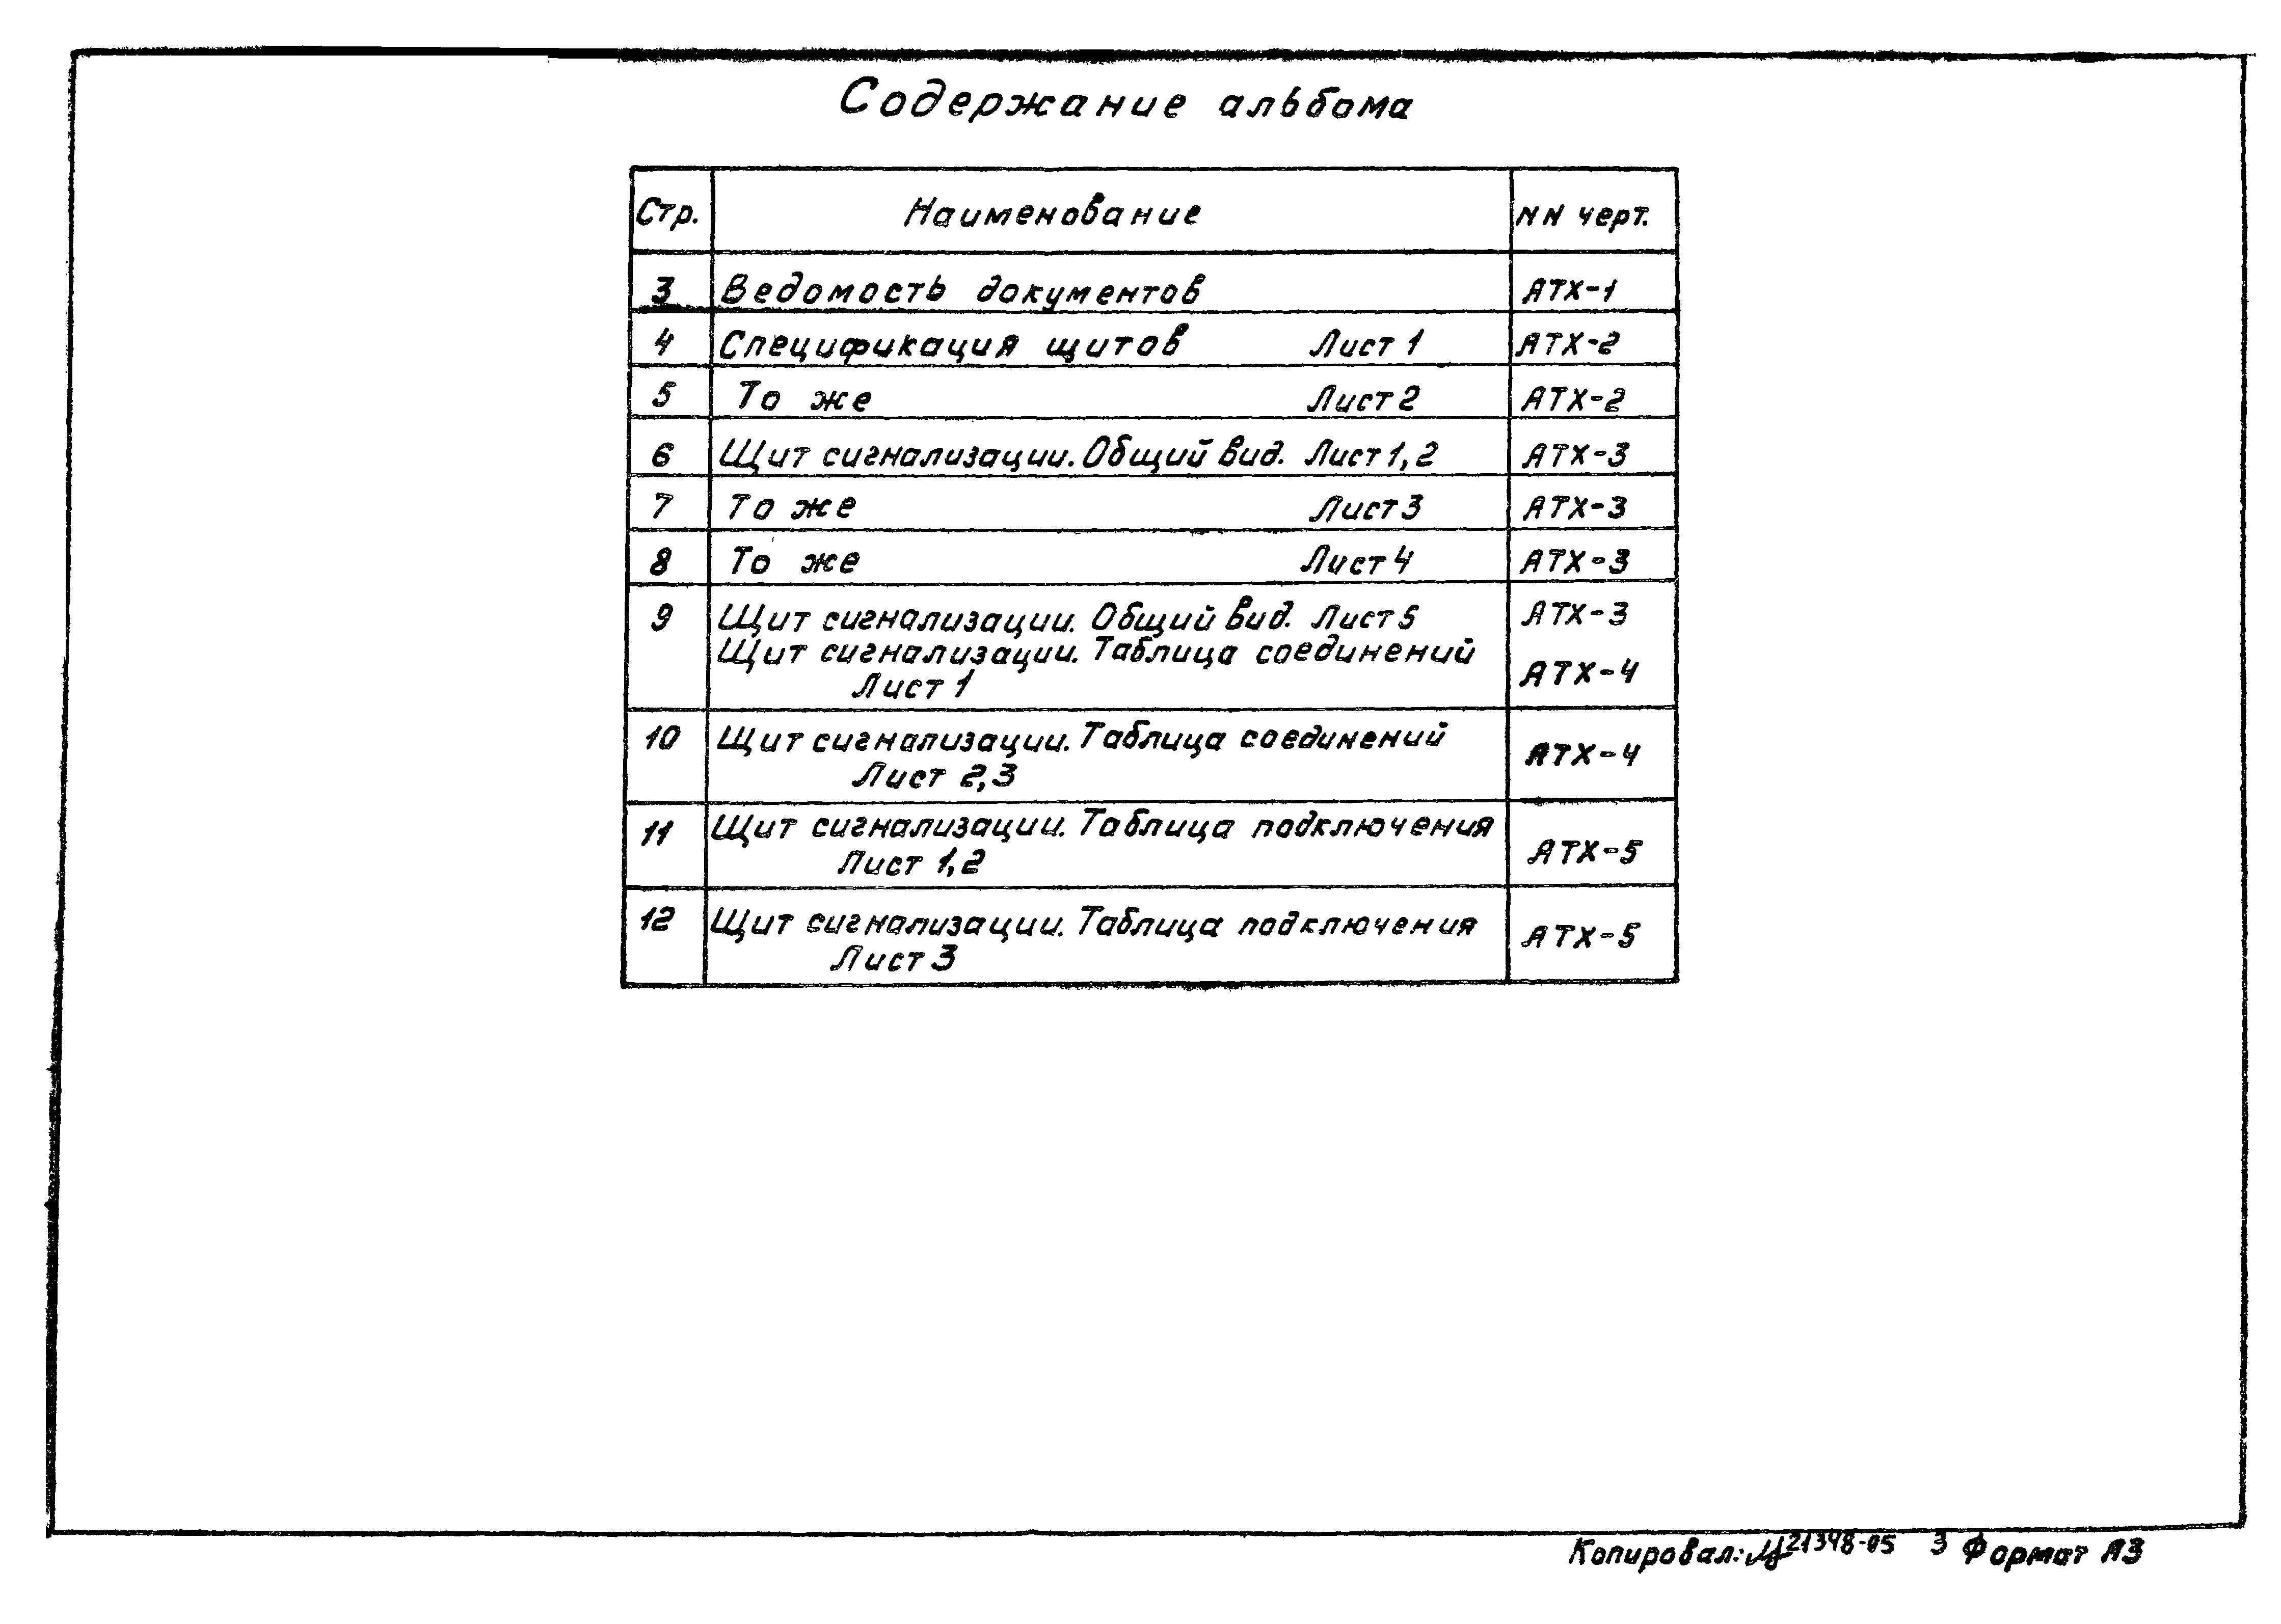 Содержание альбома
Стр. Наименование NN черт.
3 Ведомость документов АТХ-1
4 Спецификация щитов Лист 1 АТХ-2
5 То же Лист 2 АТХ-2
6 Щит сигнализации. Общий вид. Лист 1, 2 АТХ-3
7 То же Лист 3 АТХ-3
8 То же Лист 4 АТХ-3
9 Щит сигнализации. Общий вид. Лист 5 АТХ-3
Щит сигнализации. Таблица соединений
Лист 1 АТХ-4
10 Щит сигнализации. Таблица соединений
Лист 2,3 АТХ-4
11 Щит сигнализации. Таблица подключения
Лист 1,2 АТХ-5
12 Щит сигнализации. Таблица подключения
Лист 3 АТХ-5
Копировал: 21348-05 3 Формат А3